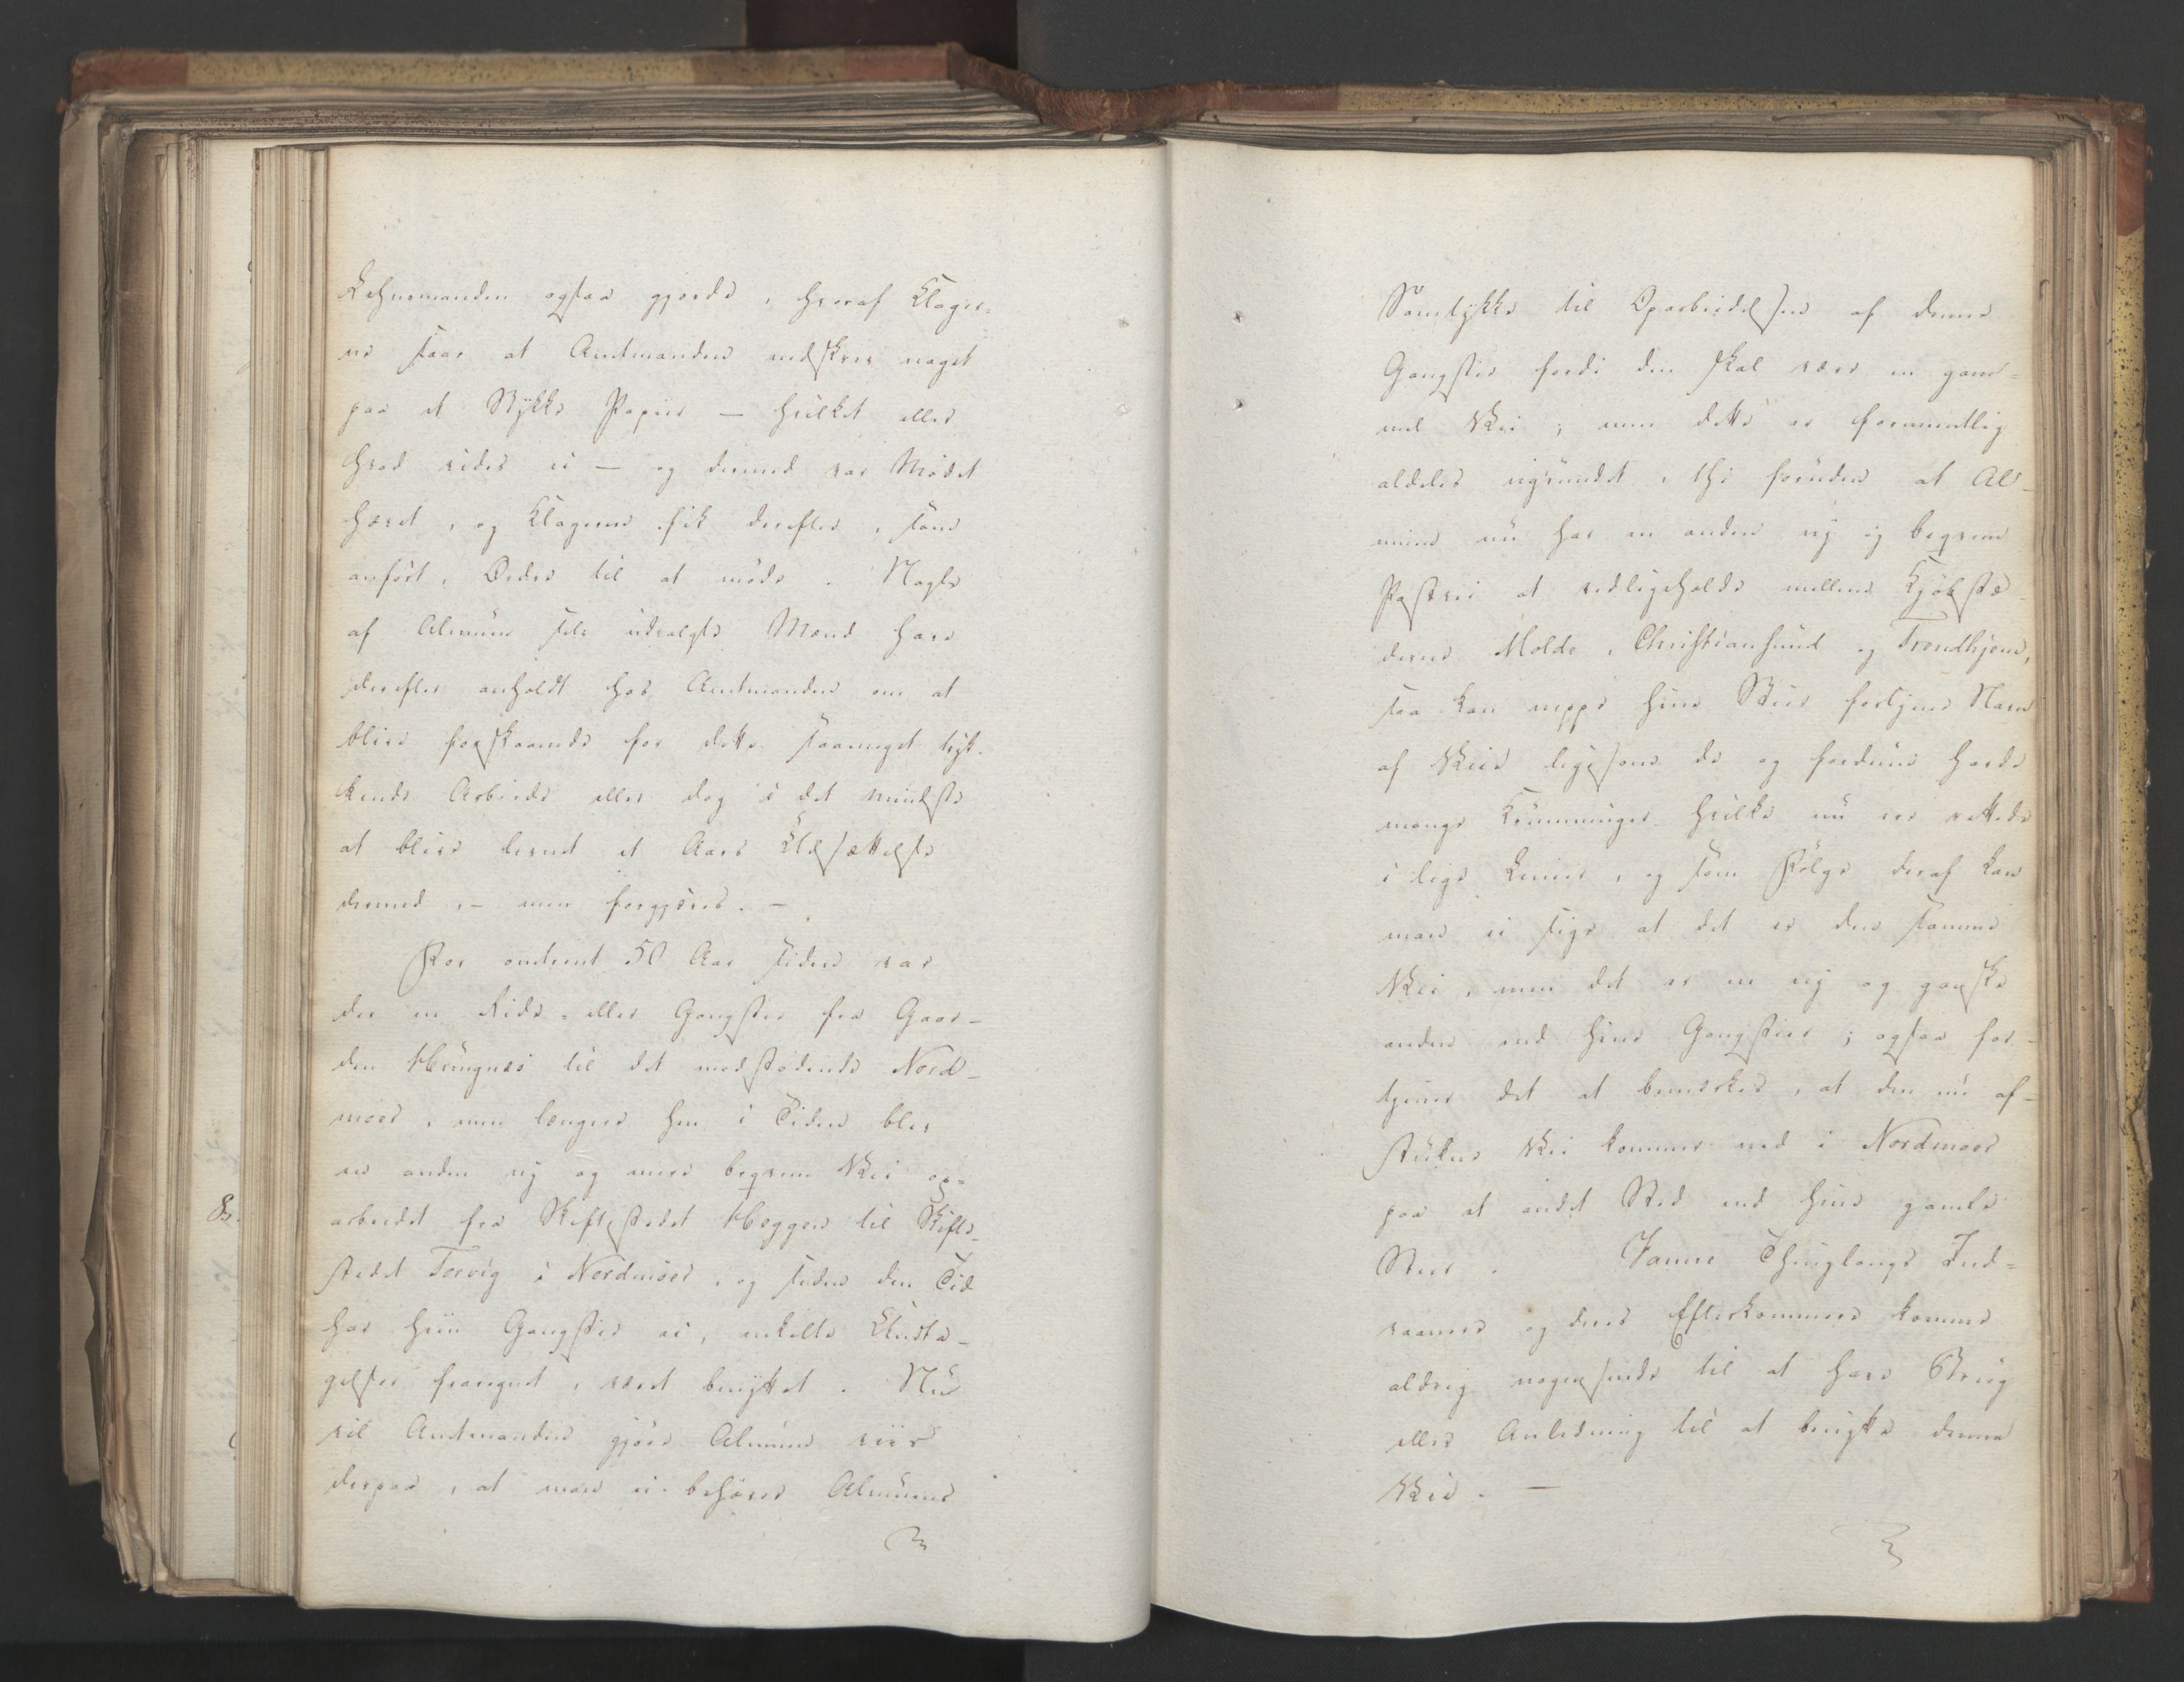 Lehnsmanden ogsaa gjorde, hvoraf Klager-
ne saae at Amtmanden nedskrev noget
paa et Stykke Papiir — hvilket eller
hvad vides ei — og dermed var Mødet
hævet, og Klagerne fik derefter, som
anført, Ordre til at møde. Nogle
af Almuen selv udvalgte Mænd have
derefter anholdt hos Amtmanden om at
blive forskaanede for dette saameget tryk-
kende Arbeide eller dog i det mindste
at blive levnet et Aars Udsættelse
dermed, – men forgjæves. –
For omtrent 50 Aar siden var
der en Ride- eller Gangstie fra Gaar-
den Heungnæs til det modstødende Nord-
møer, men længere hen i Tiden blev
en anden ny og mere beqvem Vei op-
arbeidet fra Skiftestedet Heggen til Skifte-
stedet Torvig i Nordmøer, og siden den Tid
har hiin Gangstie ei, enkelte Undta-
gelser fraregnet, været benyttet. Nu
vil Amtmanden gjøre Almuen viis
derpaa, at man ei behøver Almuens
8.
Samtykke til Oparbeidelsen af denne
Gangstie fordi den skal være en gam-
mel Vei; men dette er formeentlig
aldeles ugrundet, thi foruden at Al-
muen nu har en anden ny og beqvem
Postvei at vedligeholde mellem Kjøbstæ-
derne Molde, Christiansund og Trondhjem,
saa kan neppe hine Stier fortjene Navn
af Veie ligesom de og fordum havde
mange Krumninger hvilke nu ere rettede
i lige Linier, og som Følge deraf kan
man ei sige at det er den samme
Vei, men det er en ny og ganske
anden end hine Gangstier; ogsaa for-
tjener det at bemærkes, at den nu af-
stukne Vei kommer ned i Nordmøer
paa et andet Sted end hine gamle
Stier. Vanne Thinglaugs Ind-
vaanere og deres Efterkommere komme
aldrig nogensinde til at have Brug
eller Anledning til at benytte denne
Vei. —